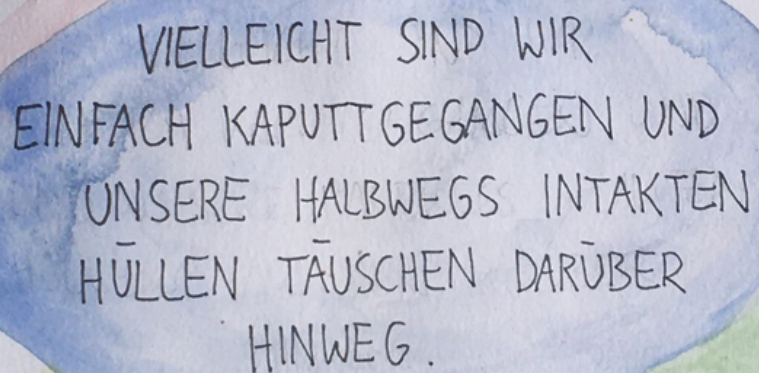 VIELLEICHT SIND WIR
EINFACH KAPUTTGEGANGEN UND
UNSERE HALBWEGS INTAKTEN
HÜLLEN TÄUSCHEN DARÜBER
HINWEG.